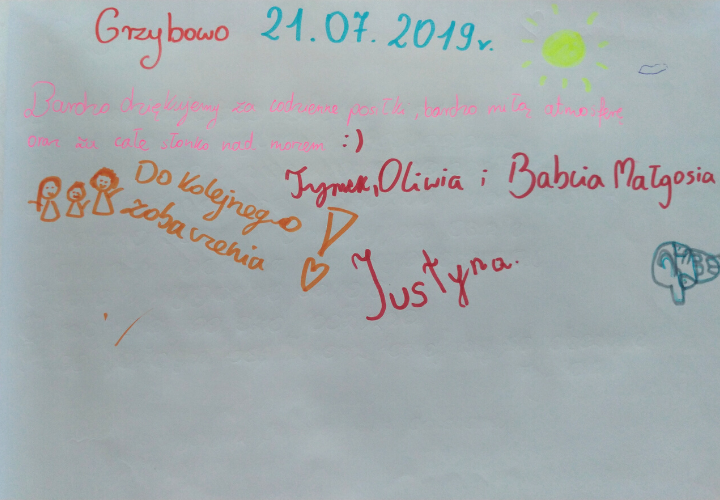 Grzybowo 21.07.2019r.
Bardzo dziękujemy za codzienne posiłki, bardzo miłą atmosferę
oraz za całe słonko nad morzem :)
Tymek, Oliwia i Babcia Małgosia
Do kolejnego
zobaczenia !
Justyna.